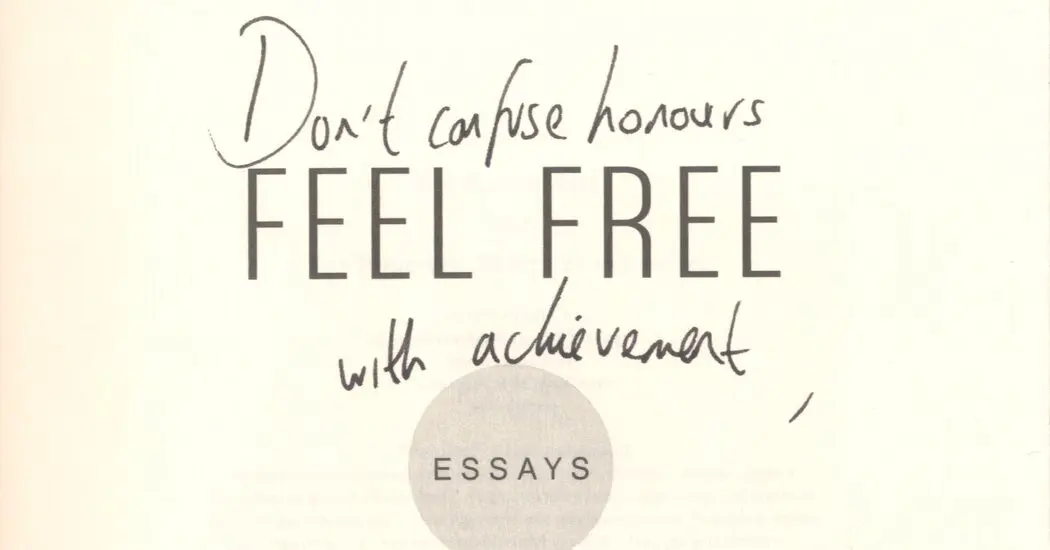 Don't confuse honours
FEEL FREE
with achievement
ESSAYS